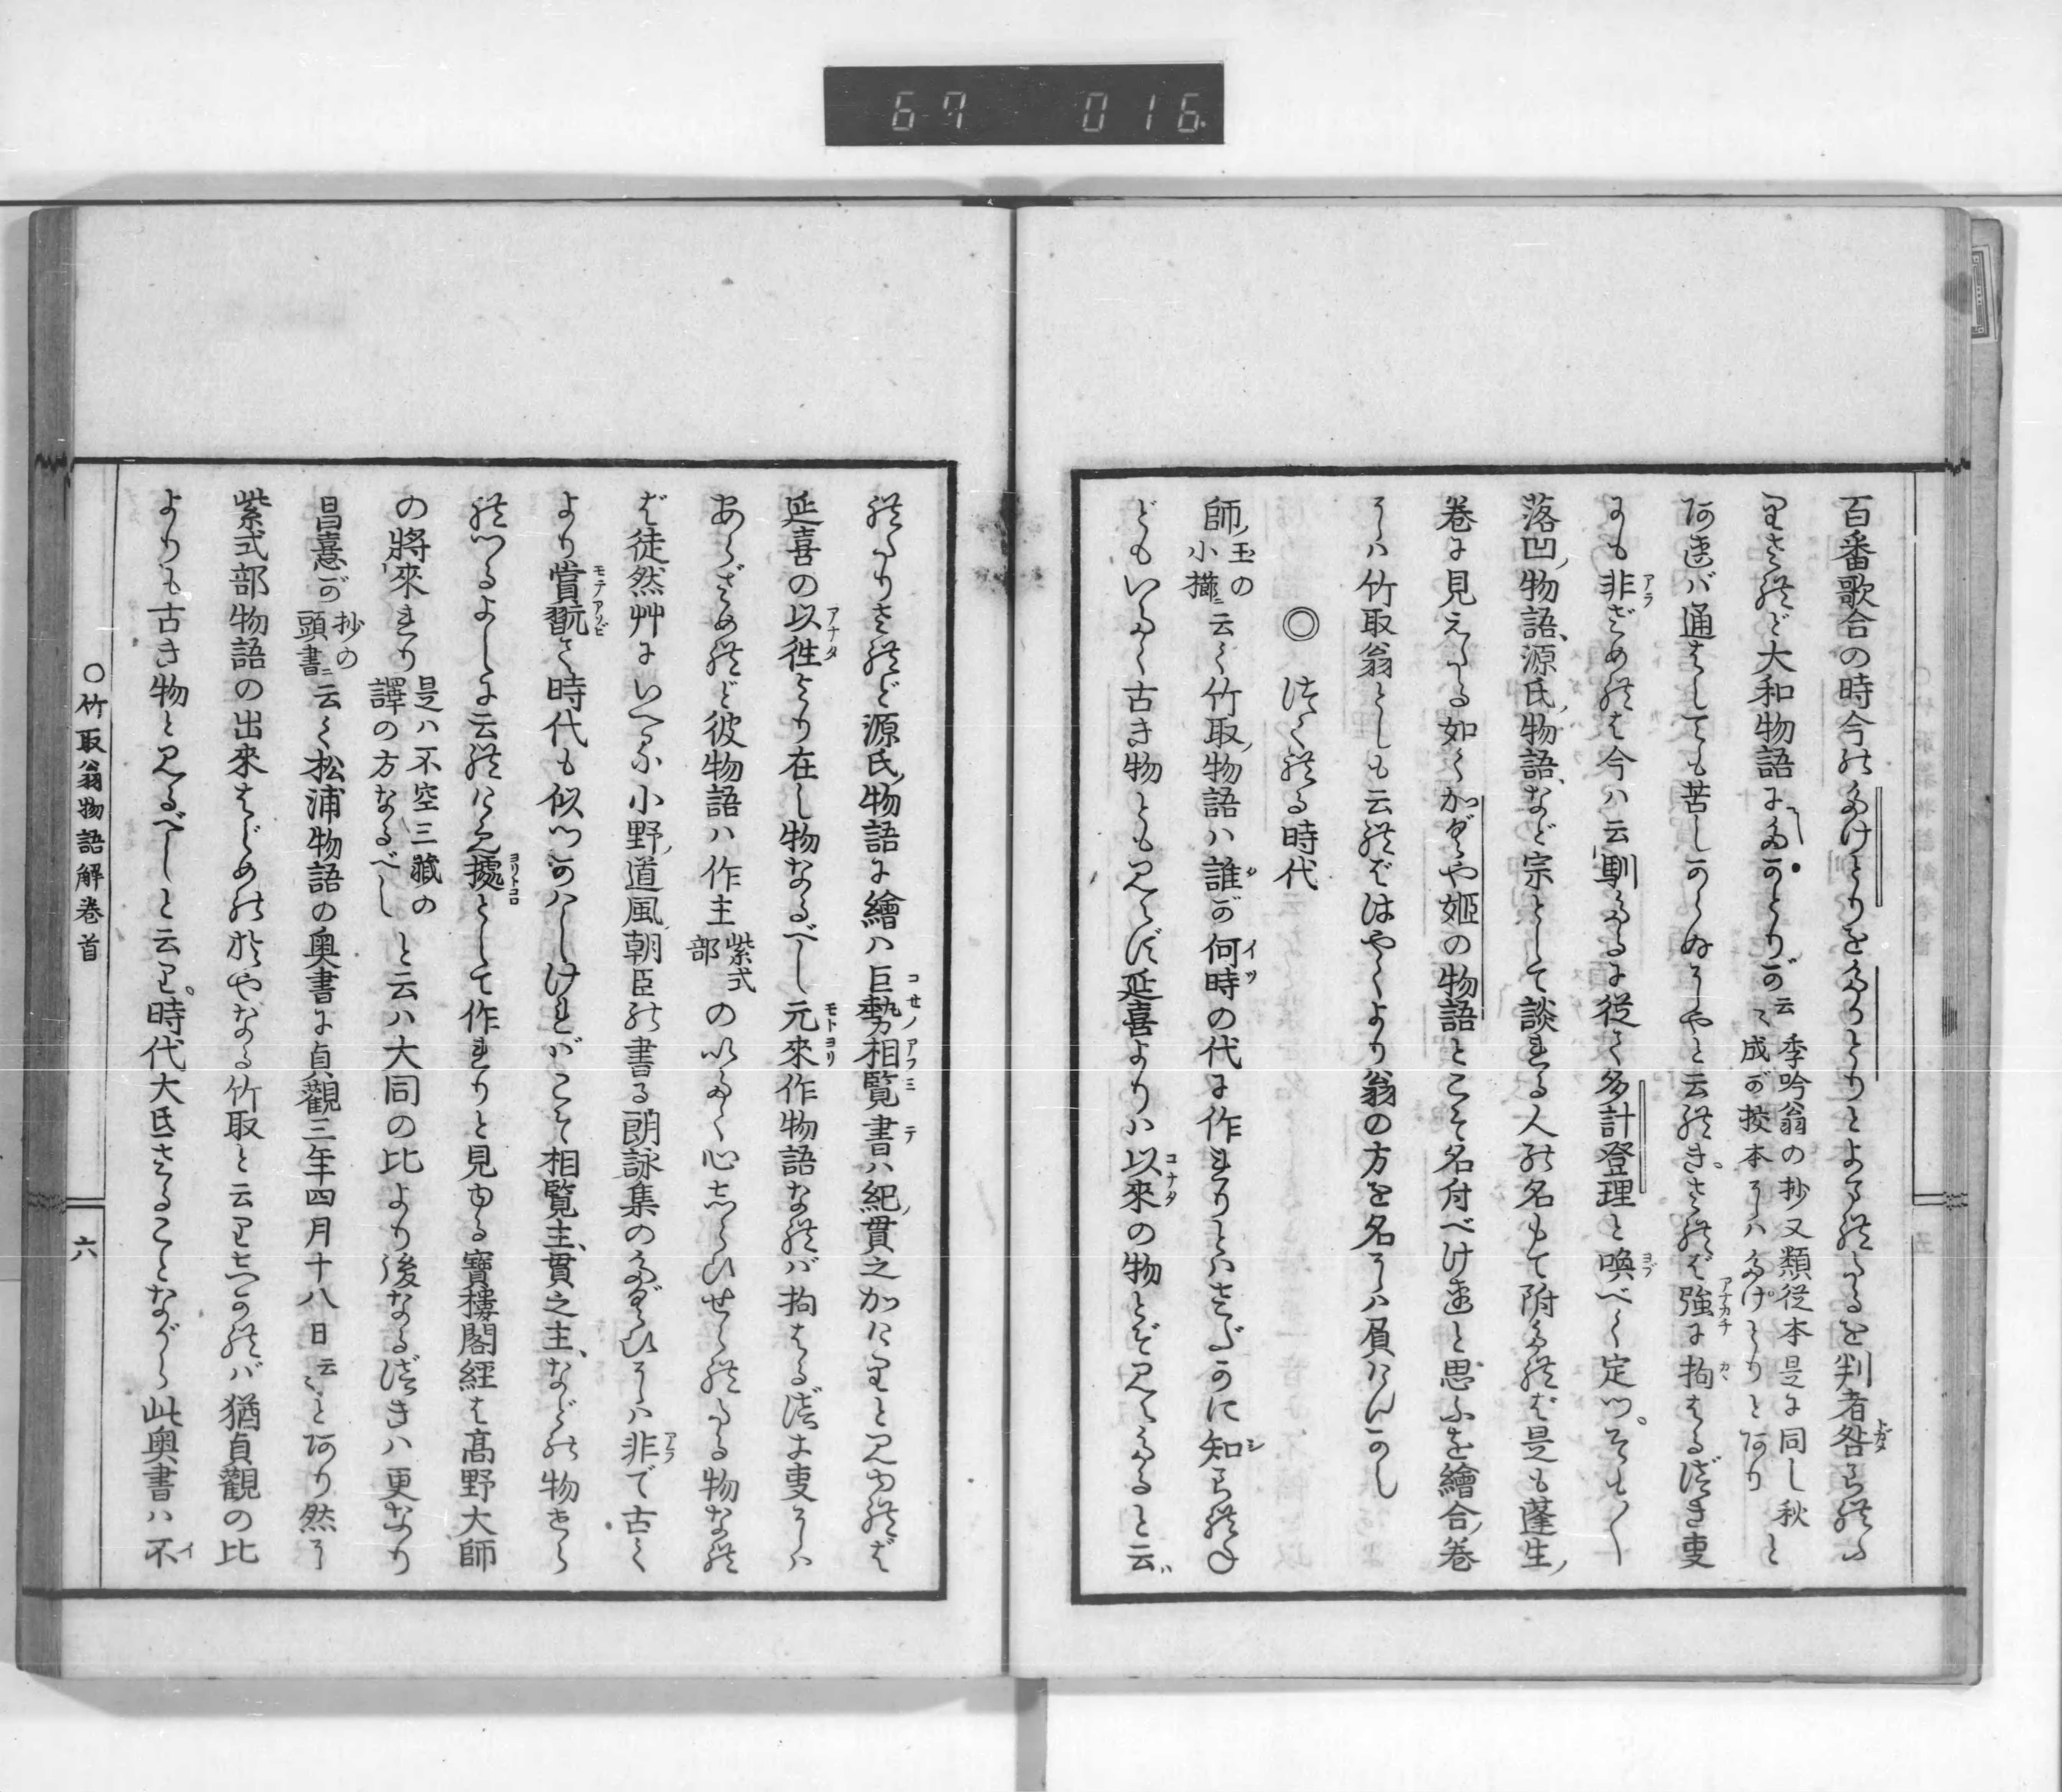 67 016
百番歌合の時今のたけとりをたかとりとよまれたるを判者咎られし
りされど大和物語にたかとりが云々季吟翁の抄又類従本是に同し秋成が挍本にはたけとりとありと
あれば通はしても苦しからぬにやと云れき。されば強に拘はるべき事
にも非ざめれは今は云馴たるに従て多計登理と喚べく定つ。そも〱
落凹物語、源氏物語、など宗として談れる人の名もて附たれば是も蓬生
巻に見えたる如くかぐや姫の物語とこそ名付べけれと思ふを繪合巻
には竹取翁としも云ればはやくより翁の方を名には屓けんかし
◎ 作れる時代
師玉の小櫛ニ云く竹取物語は誰が何時の代に作れりとはさだかに知られね
どもいたく古き物とも見えず延喜よりは以來の物とぞ見えたると云
れたりされど源氏物語に繪は巨勢相覧書は紀貫之かけりと見ゆれば
延喜の以往より在し物なるべし元來作物語なれば拘はるべき事には
あらざめれど彼物語は作主紫式部のいたく心しらひせられたる物なれ
ば徒然艸にいへる小野道風朝臣の書る朗詠集のたぐひには非で古く
より賞翫て時代も似つかはしければこそ相覧主、貫之主、などの物せら
れつるよしに云れけめ據として作れりと見ゆる寶樓閣経は髙野大師
の將來れり是は不空三藏の譯の方なるべしと云は大同の比より後なるべきは更なり
昌憙が抄の頭書ニ云く松浦物語の奥書に貞觀三年四月十八日云々とあり然に
紫式部物語の出來はじめのおやなる竹取と云りしかれば猶貞觀の比
よりも古き物と見るべしと云り。時代大氐さることながら此奥書は不
○竹取翁物語解巻首
六